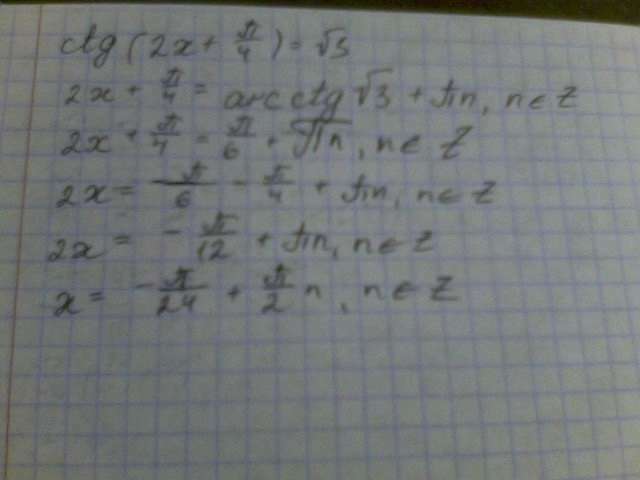 ctg (2x + π/4) = √3
2x + π/4 = arcctg √3 + πn, n ∈ Z
2x + π/4 = π/6 + πn, n ∈ Z
2x = π/6 - π/4 + πn, n ∈ Z
2x = - π/12 + πn, n ∈ Z
x = - π/24 + π/2 n, n ∈ Z